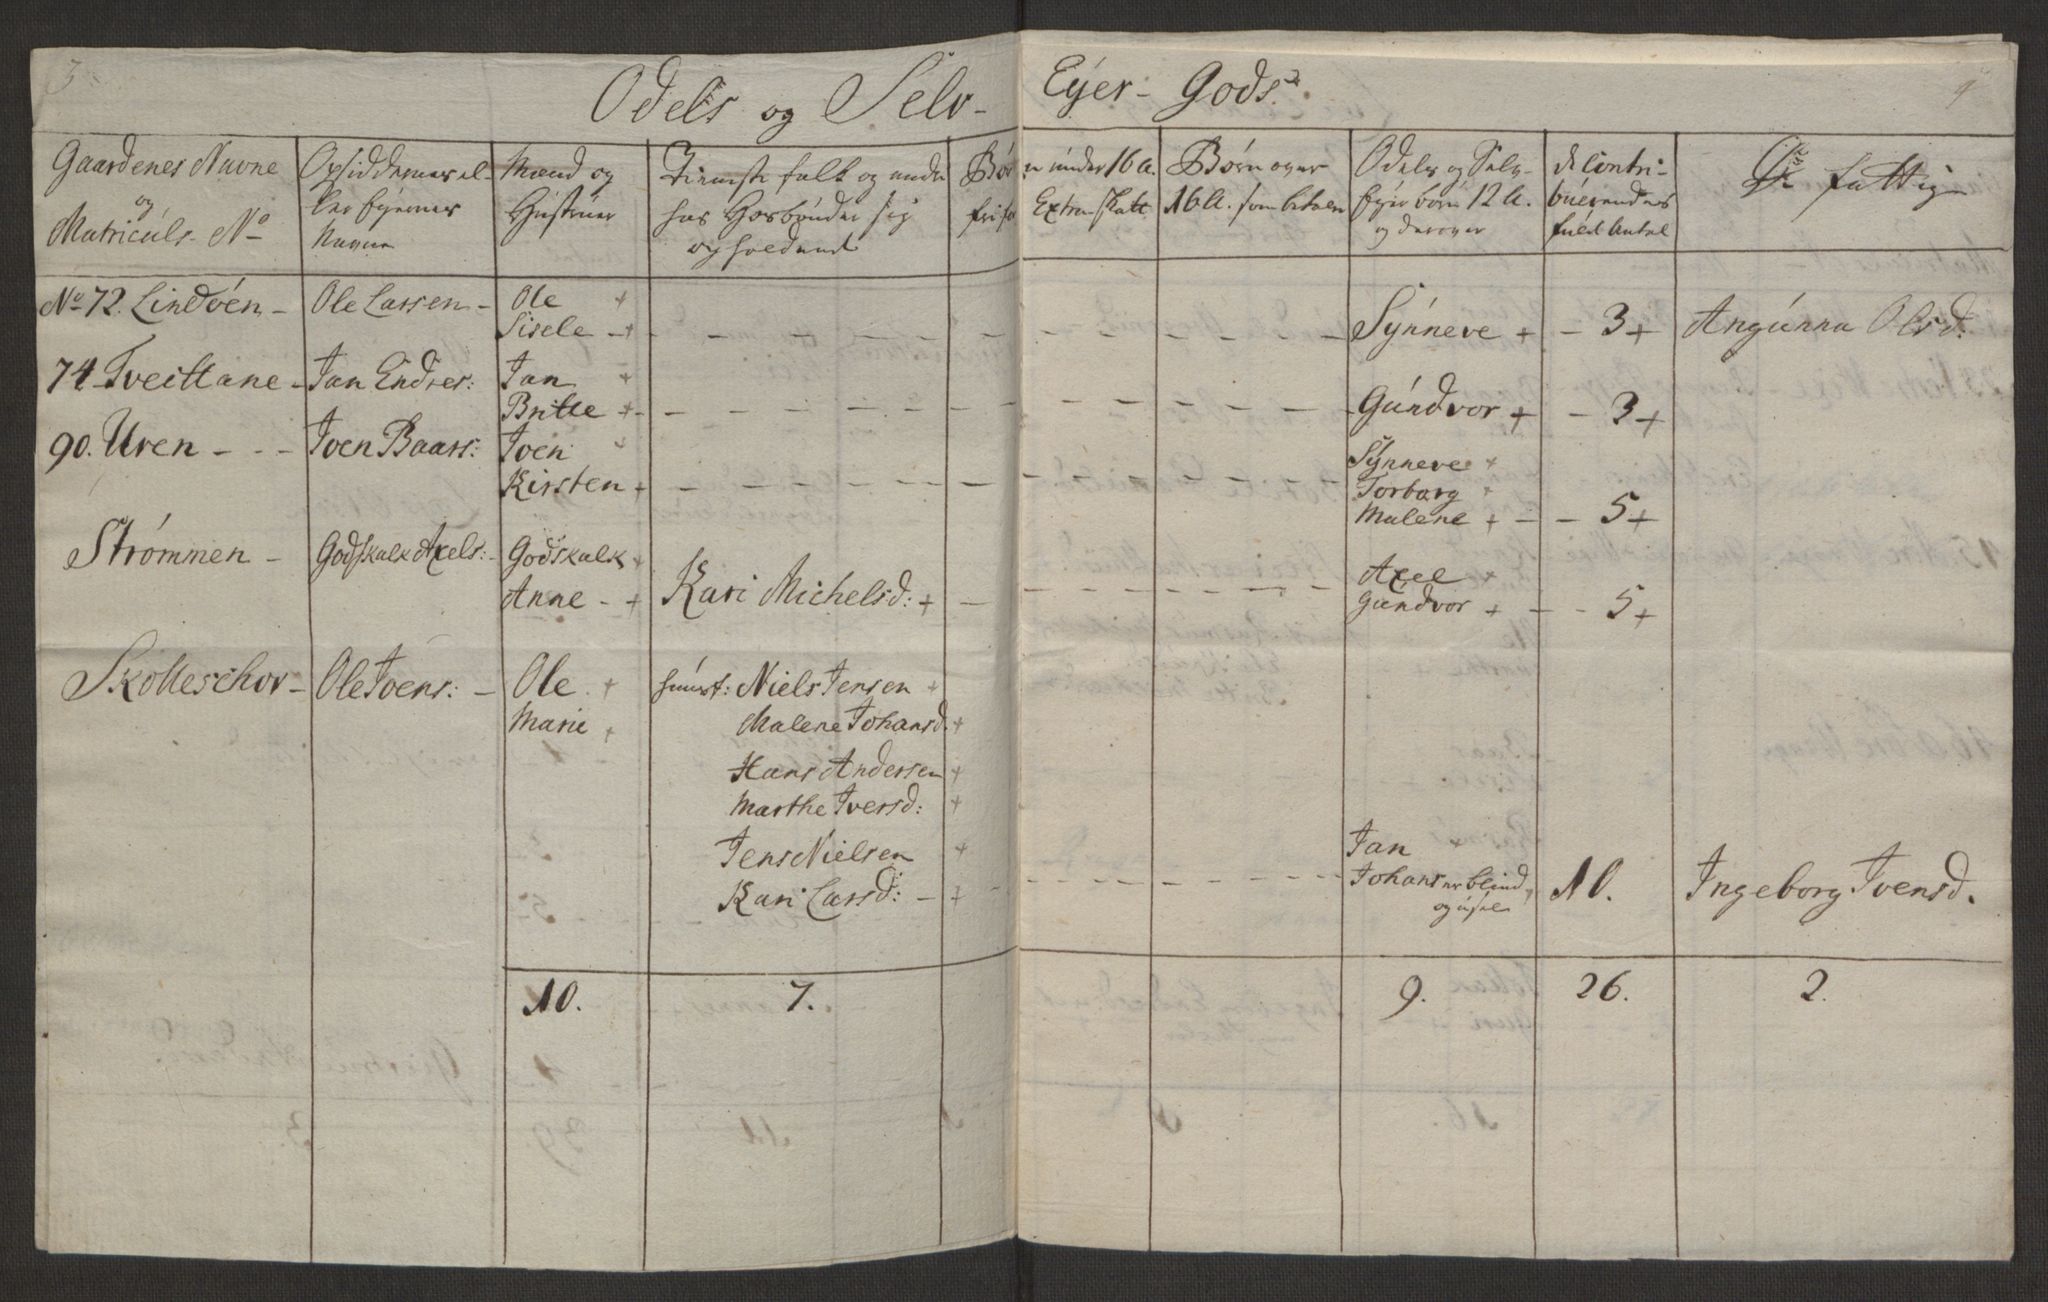 3
Odels og Selv-Eÿer-Gods
9
Gaardenes Navne og Matriculs-No
Opsiddernes el-
ler Eyernes
Navne
Mænd og
Hustruer
Tieniste folk og andre
som Hosbonder sig
opholdende
Bør
fri for
n under 16 A.
Extra Skatt.
Børn over
16 A. som betaler
Odels og Selv-
Eyer børn 12 A.
og derover
de Contri-
buerendes
fuld Antal
De fattige
No 72. Lindøen - Ole Lassen - Ole +
Sisele - + Sÿnneve + - 3 + Angúnna Olsd.
74 Tveittane - Jan Endres: Jan +
Britte + - Gúndvor + - 3 +
90. Uren - - - Joen Baars: Joen + Sÿnneve +
Kirsten + Torborg +
Malene + - - 5 +
Strømmen - Godskalk Axels: - Godskalk + Axel +
Anne - + Kari Michelsd: + - Gúndvor + - - 5 +
Skolleschor - Ole Joens: - Ole + Niels Jensen +
Marie + Malene Johansd. +
Hans Andersen +
Marthe Iversd: +
Jens Nielsen + Jan +
Kari Larsd: - + Johans er blind 10. Ingeborg Ivensd.
og úsel
10. 7. 9. 26. 2.